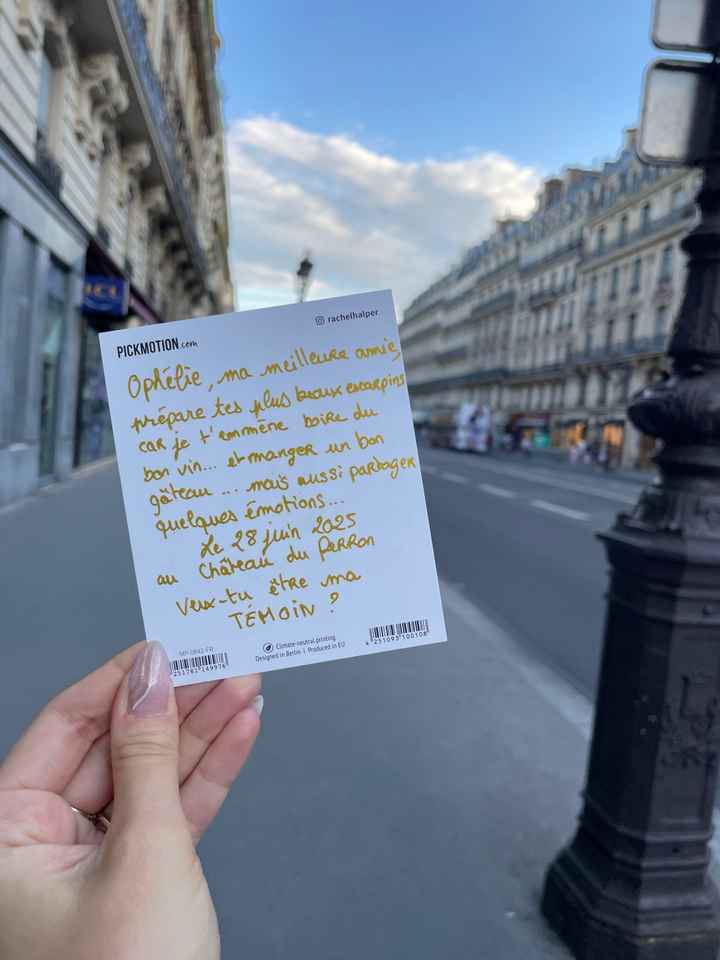 PICKMOTION.com
rachelhalper
Ophélie, ma meilleure amie,
prépare tes plus beaux escarpins
car je t'emmène boire du
bon vin... et manger un bon
gâteau ... mais aussi partager
quelques émotions...
Le 28 juin 2025
au Château du Perron
Veux-tu être ma
TÉMOIN ?
MP-0842-FR
4 251093 100108
Climate-neutral printing
Designed in Berlin | Produced in EU
LCL